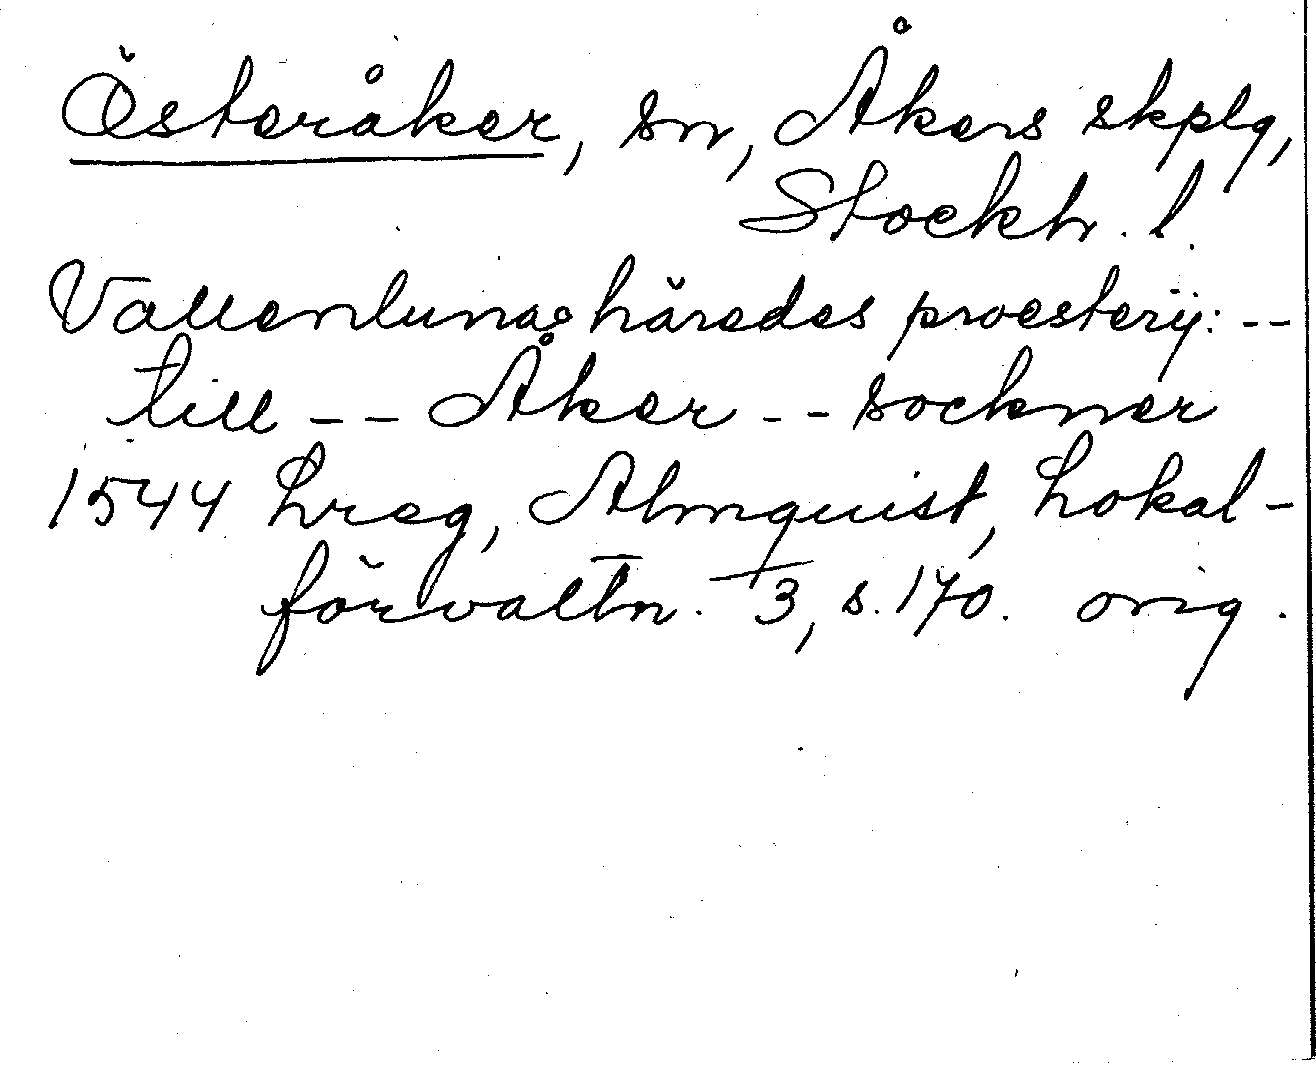 Österåker, sn, Åkers skplg,
Stockh. l.
Vallenluna häredes proesterij: --
till -- Åker -- sockner
1544 hreg, Almquist, Lokal-
förvaltn. 3, s. 170. orig.